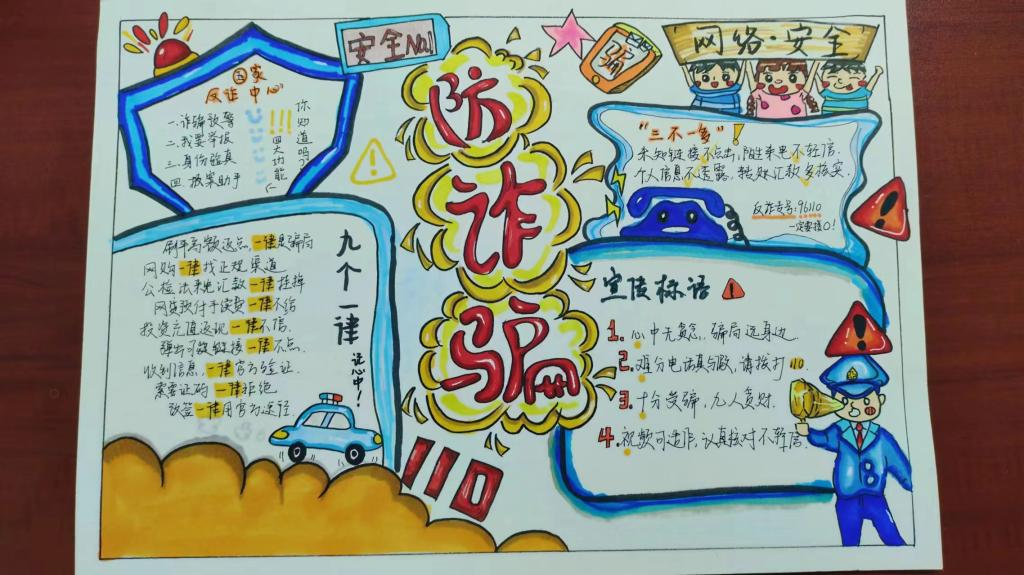 安全No.1
防诈骗
骗
网络·安全
国家
反诈中心
一.诈骗预警
二.我要举报
三.身份验真
四.报案助手
你知道吗?
四大功能
!!!
"三不一多"!
未知链接不点击,陌生来电不轻信.
个人信息不透露,转账汇款多核实.
反诈专号:96110
一定要接哦!
九个一律
记心中!
刷单高额返点,一律是骗局
网购一律找正规渠道
公检法来电汇款一律挂掉
网贷预付手续费一律不给
投资充值返现一律不信.
弹出可疑链接一律不点.
收到信息,一律官方验证.
索要证码一律拒绝
改签一律用官方途径
110
宣传标语
1.心中无贪念,骗局远身边.
2.难分电话真与假,请拨打110.
3.十分受骗,九人贪财.
4.视频可造作,认真核对不轻信.